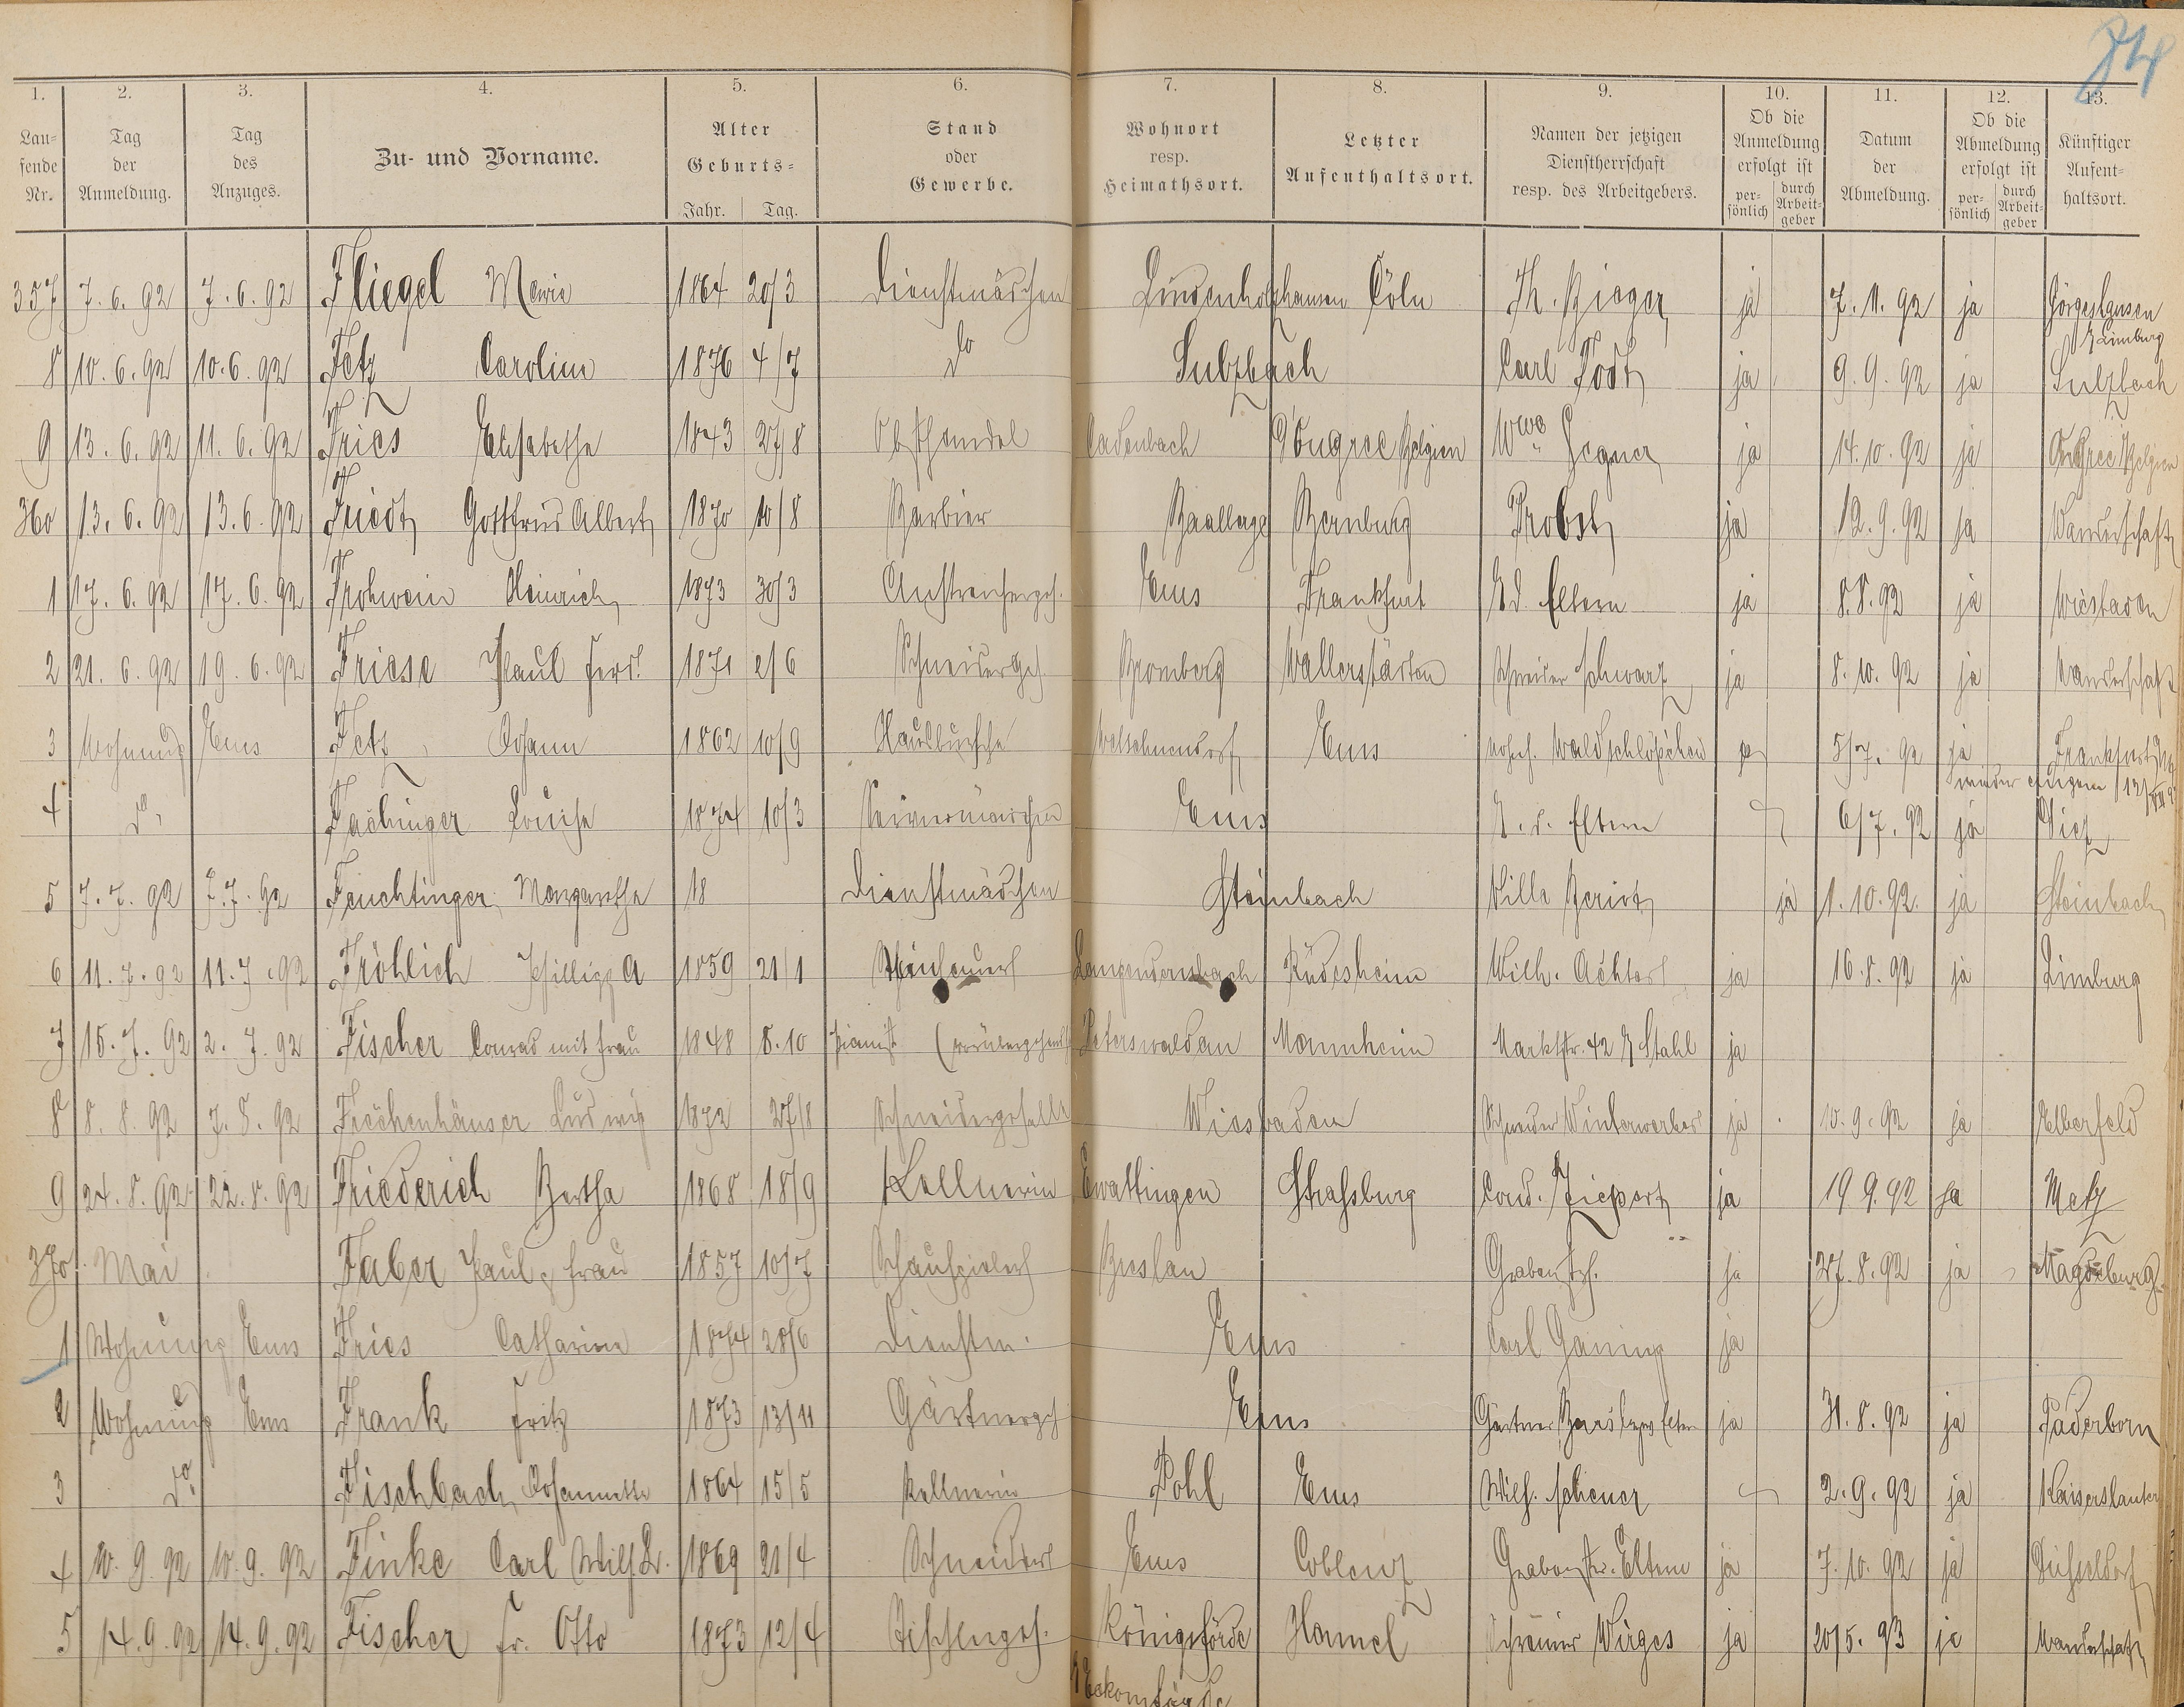 84
1. 2. 3. 4. 5. 6. 7. 8. 9. 10. 11. 12. 13.
Lau-
fende
Nr.
Tag
der
Anmeldung.
Tag
des
Anzuges.
Zu- und Vorname.
Alter
Geburts-
Jahr. Tag.
Stand
oder
Gewerbe.
Wohnort
resp.
Heimathsort.
Letzter
Aufenthaltsort.
Namen der jetzigen
Dienstherrschaft
resp. des Arbeitgebers.
Ob die
Anmeldung
erfolgt ist
per-
sönlich
durch
Arbeit-
geber
Datum
der
Abmeldung.
Ob die
Abmeldung
erfolgt ist
per-
sönlich
durch
Arbeit-
geber
Künftiger
Aufent-
haltsort.
357 7.6.92 7.6.92 Fliegel Marie 1864 20/3 Dienstmädchen Lindenholzhausen Cöln Th. Rieger ja 7.11.92 ja Görgeshausen
Limburg
8 10.6.92 10.6.92 Fetz Caroline 1876 4/7 do Sulzbach Carl Todt ja 9.9.92 ja Sulzbach
9 13.6.92 11.6.92 Fries Elisabetha 1843 27/8 Obsthandel Cadenbach Ougree Belgien Wwe ja 14.10.92 ja Ougree Belgien
360 13.6.92 13.6.92 Friedt Gottfried Albert 1870 10/8 Barbier Baalberge Bernburg Probst ja 12.9.92 ja Wanderschaft
1 17.6.92 17.6.92 Frohwein Heinrich 1873 30/3 Anstreichergeh. Ems Frankfurt b/d. Eltern ja 8.8.92 ja Wiesbaden
2 21.6.92 19.6.92 Friese Paul Ferd. 1871 2/6 Schneidergeh. Bromberg Wallerstädten Schneider Schwarz ja 8.10.92 ja Wanderschaft
3 Wohnung Ems Fetz Johann 1862 10/9 Hausbursche Welschneudorf Ems Waldschlößchen 5/7.92 ja Frankfurt
wieder 12/
4 do Fachinger Louise 1874 10/3 Ems b. d. Eltern 6/7.92 ja Diez
5 7.7.92 7.7.92 Feuchtinger Margarethe 18 Dienstmädchen Steinbach Villa Beriot ja 1.10.92 ja Steinbach
6 11.7.92 11.7.92 Fröhlich Phillipp A 1859 21/1 Steinhauer Langendernbach Rüdesheim Wilh. Achter ja 16.8.92 ja Limburg
7 15.7.92 2.7.92 Fischer Conrad mit Frau 1848 8.10 Pianist (vorübergehend Peterswaldau Mannheim Marktstr. 42 b/ Stahl ja
8 8.8.92 7.8.92 Ludwig 1872 27/8 Schneidergeselle Wiesbaden Schneider Winterwerber ja 10.9.92 ja Elberfeld
9 24.8.92 22.8.92 Friederich Bertha 1868 18/9 Kellnerin Ewattingen Straßburg Cond. Ziepert ja 19.9.92 ja Metz
370 Mai Faber Paul & Frau 1857 10/7 Schauspieler Breslau Grabenstr. ja 27.8.92 ja Magdeburg
1 Wohnung Ems Fries Catharine 1874 28/6 Dienstm. Ems Carl Ganing ja
2 Wohnung Ems Frank Fritz 1873 13/11 Gärtnergeh Ems Gärtner ja 31.8.92 ja Paderborn
3 do Fischbach Johannette 1864 15/5 Kellnerin Pohl Ems Wilh. Scheuer 2.9.92 ja Kaiserslautern
4 10.9.92 10.9.92 Finke Carl Wilh. 1869 21/4 Schneider Ems Coblenz Grabenstr. Eltern ja 7.10.92 ja Düsseldorf
5 14.9.92 14.9.92 Fischer Fr. Otto 1873 12/4 Tischlergeh. Königsförde Hamel Schreiner Wirges ja 20/5.93 ja Wanderschaft